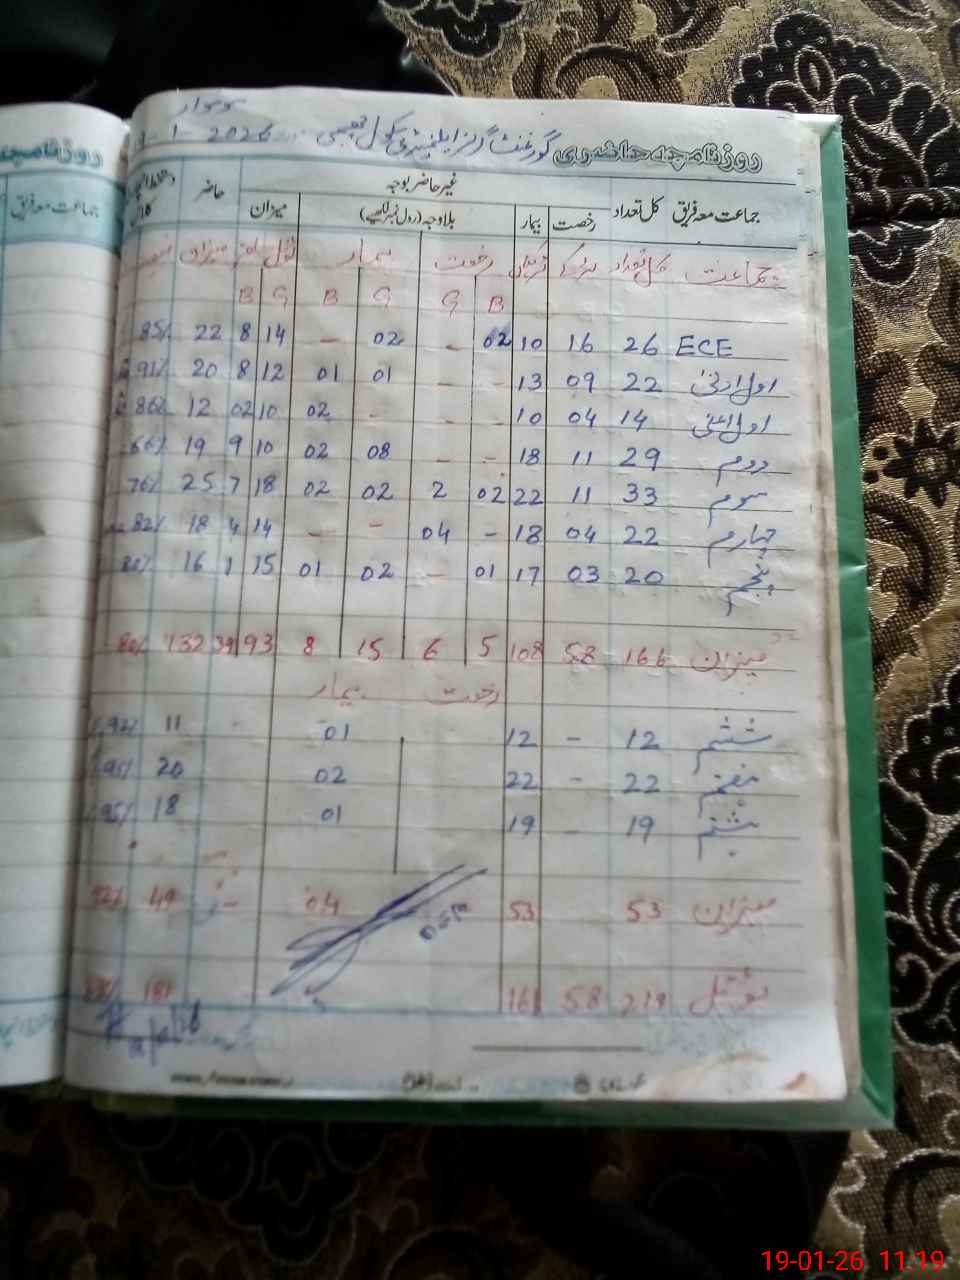 سوموار
روزنامچہ حاضری گورنمنٹ گرلز ایلیمنٹری سکول 19-1-2026
جماعت معہ فریق کل تعداد رخصت بیمار غیر حاضر بوجہ بلاوجہ (رول نمبر لکھیے) میزان حاضر
جماعت کل تعداد لڑکے لڑکیاں رخصت بیمار ٹوٹل حاضر میزان
B G G B G B
ECE 26 16 10 02 - 02 - 14 8 22 85%
اول ادنیٰ 22 09 13 - - 01 01 12 8 20 91%
اول اعلیٰ 14 04 10 - - - 02 10 02 12 86%
دوم 29 11 18 - - 08 02 10 9 19 66%
سوم 33 11 22 02 2 02 02 18 7 25 76%
چہارم 22 04 18 - 04 - - 14 4 18 82%
پنجم 20 03 17 01 - 02 01 15 1 16 80%
میزان 166 58 108 5 6 15 8 93 39 132 80%
رخصت بیمار
ششم 12 - 12 01 11 92%
ہفتم 22 - 22 02 20 91%
ہشتم 19 - 19 01 18 95%
میزان 53 53 04 - 49 92%
ٹوٹل 219 58 161 181
جماعت معہ فریق
روزنامچہ
19-01-26 11:19